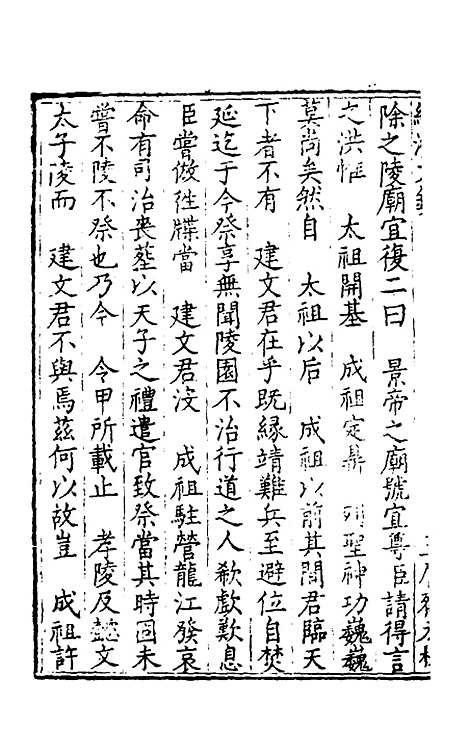 除之陵廟宜復二曰　景帝之廟號宜尊臣請得言
之洪惟　太祖開基　成祖定鼎　列聖神功巍巍
莫尚矣然自　太祖以后　成祖以前其間君臨天
下者不有　建文君在乎既緣靖難兵至避位自焚
延迄于今祭享無聞陵園不治行道之人欷歔歎息
臣嘗倣徃牒當　建文君沒　成祖駐營龍江發哀
命有司治喪塟以天子之禮遣官致祭當其時固未
嘗不陵不祭也乃今　令甲所載止　孝陵及懿文
太子陵而　建文君不與焉茲何以故豈　成祖許